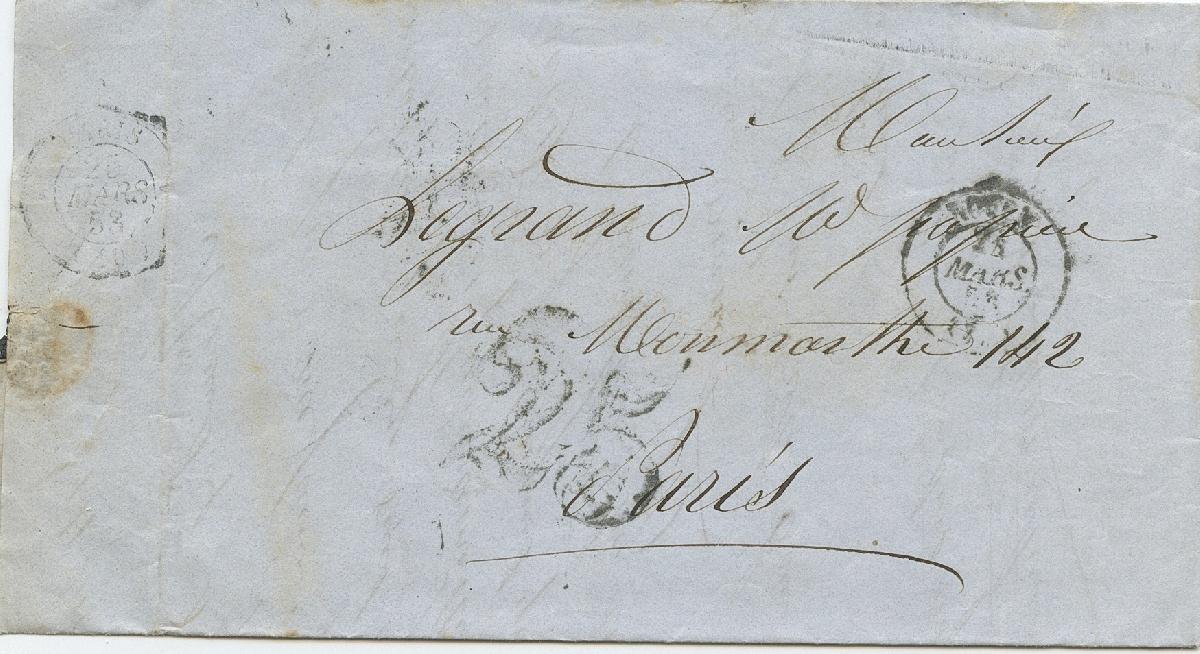 Monsieur
Legrand Md papier
rue Monmarthe 142
Paris
25
MARS
53
15
MARS
53